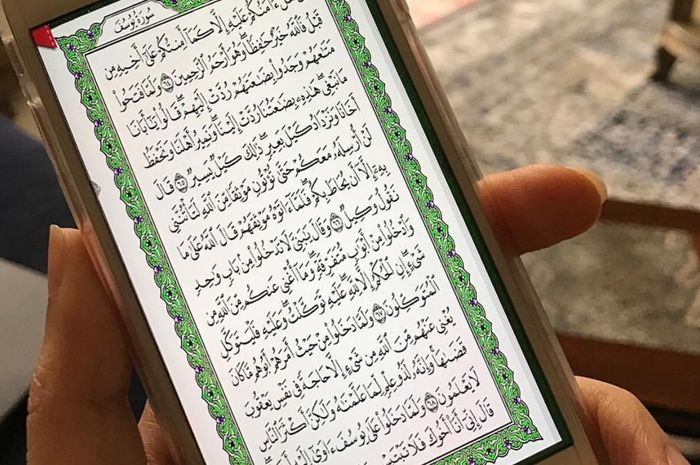 سُورَةُ يُوسُفَ
ءَامَنُكُمْ عَلَيْهِ إِلَّا كَمَآ أَمِنتُكُمْ عَلَىٰٓ أَخِيهِ مِن
قَبْلُ فَٱللَّهُ خَيْرٌ حَٰفِظًا ۖ وَهُوَ أَرْحَمُ ٱلرَّٰحِمِينَ ٦٤ وَلَمَّا فَتَحُوا۟
مَتَٰعَهُمْ وَجَدُوا۟ بِضَٰعَتَهُمْ رُدَّتْ إِلَيْهِمْ ۖ قَالُوا۟ يَٰٓأَبَانَا
مَا نَبْغِى ۖ هَٰذِهِۦ بِضَٰعَتُنَا رُدَّتْ إِلَيْنَا ۖ وَنَمِيرُ أَهْلَنَا وَنَحْفَظُ
أَخَانَا وَنَزْدَادُ كَيْلَ بَعِيرٍ ۖ ذَٰلِكَ كَيْلٌ يَسِيرٌ ٦٥ قَالَ
لَنْ أُرْسِلَهُۥ مَعَكُمْ حَتَّىٰ تُؤْتُونِ مَوْثِقًا مِّنَ ٱللَّهِ لَتَأْتُنَّنِى
بِهِۦٓ إِلَّآ أَن يُحَاطَ بِكُمْ ۖ فَلَمَّآ ءَاتَوْهُ مَوْثِقَهُمْ قَالَ ٱللَّهُ عَلَىٰ مَا
نَقُولُ وَكِيلٌ ٦٦ وَقَالَ يَٰبَنِىَّ لَا تَدْخُلُوا۟ مِنۢ بَابٍ وَٰحِدٍ
وَٱدْخُلُوا۟ مِنْ أَبْوَٰبٍ مُّتَفَرِّقَةٍ ۖ وَمَآ أُغْنِى عَنكُم مِّنَ ٱللَّهِ مِن
شَىْءٍ ۖ إِنِ ٱلْحُكْمُ إِلَّا لِلَّهِ ۖ عَلَيْهِ تَوَكَّلْتُ ۖ وَعَلَيْهِ فَلْيَتَوَكَّلِ
ٱلْمُتَوَكِّلُونَ ٦٧ وَلَمَّا دَخَلُوا۟ مِنْ حَيْثُ أَمَرَهُمْ أَبُوهُم مَّا كَانَ
يُغْنِى عَنْهُم مِّنَ ٱللَّهِ مِن شَىْءٍ إِلَّا حَاجَةً فِى نَفْسِ يَعْقُوبَ
قَضَىٰهَا ۚ وَإِنَّهُۥ لَذُو عِلْمٍ لِّمَا عَلَّمْنَٰهُ وَلَٰكِنَّ أَكْثَرَ ٱلنَّاسِ
لَا يَعْلَمُونَ ٦٨ وَلَمَّا دَخَلُوا۟ عَلَىٰ يُوسُفَ ءَاوَىٰٓ إِلَيْهِ أَخَاهُ ۖ
قَالَ إِنِّىٓ أَنَا۠ أَخُوكَ فَلَا تَبْتَئِسْ